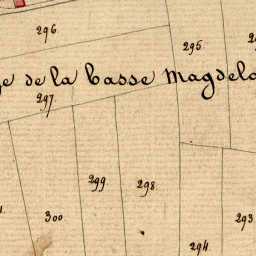 296
295
de la basse magdel
297
299
298
300
293
294